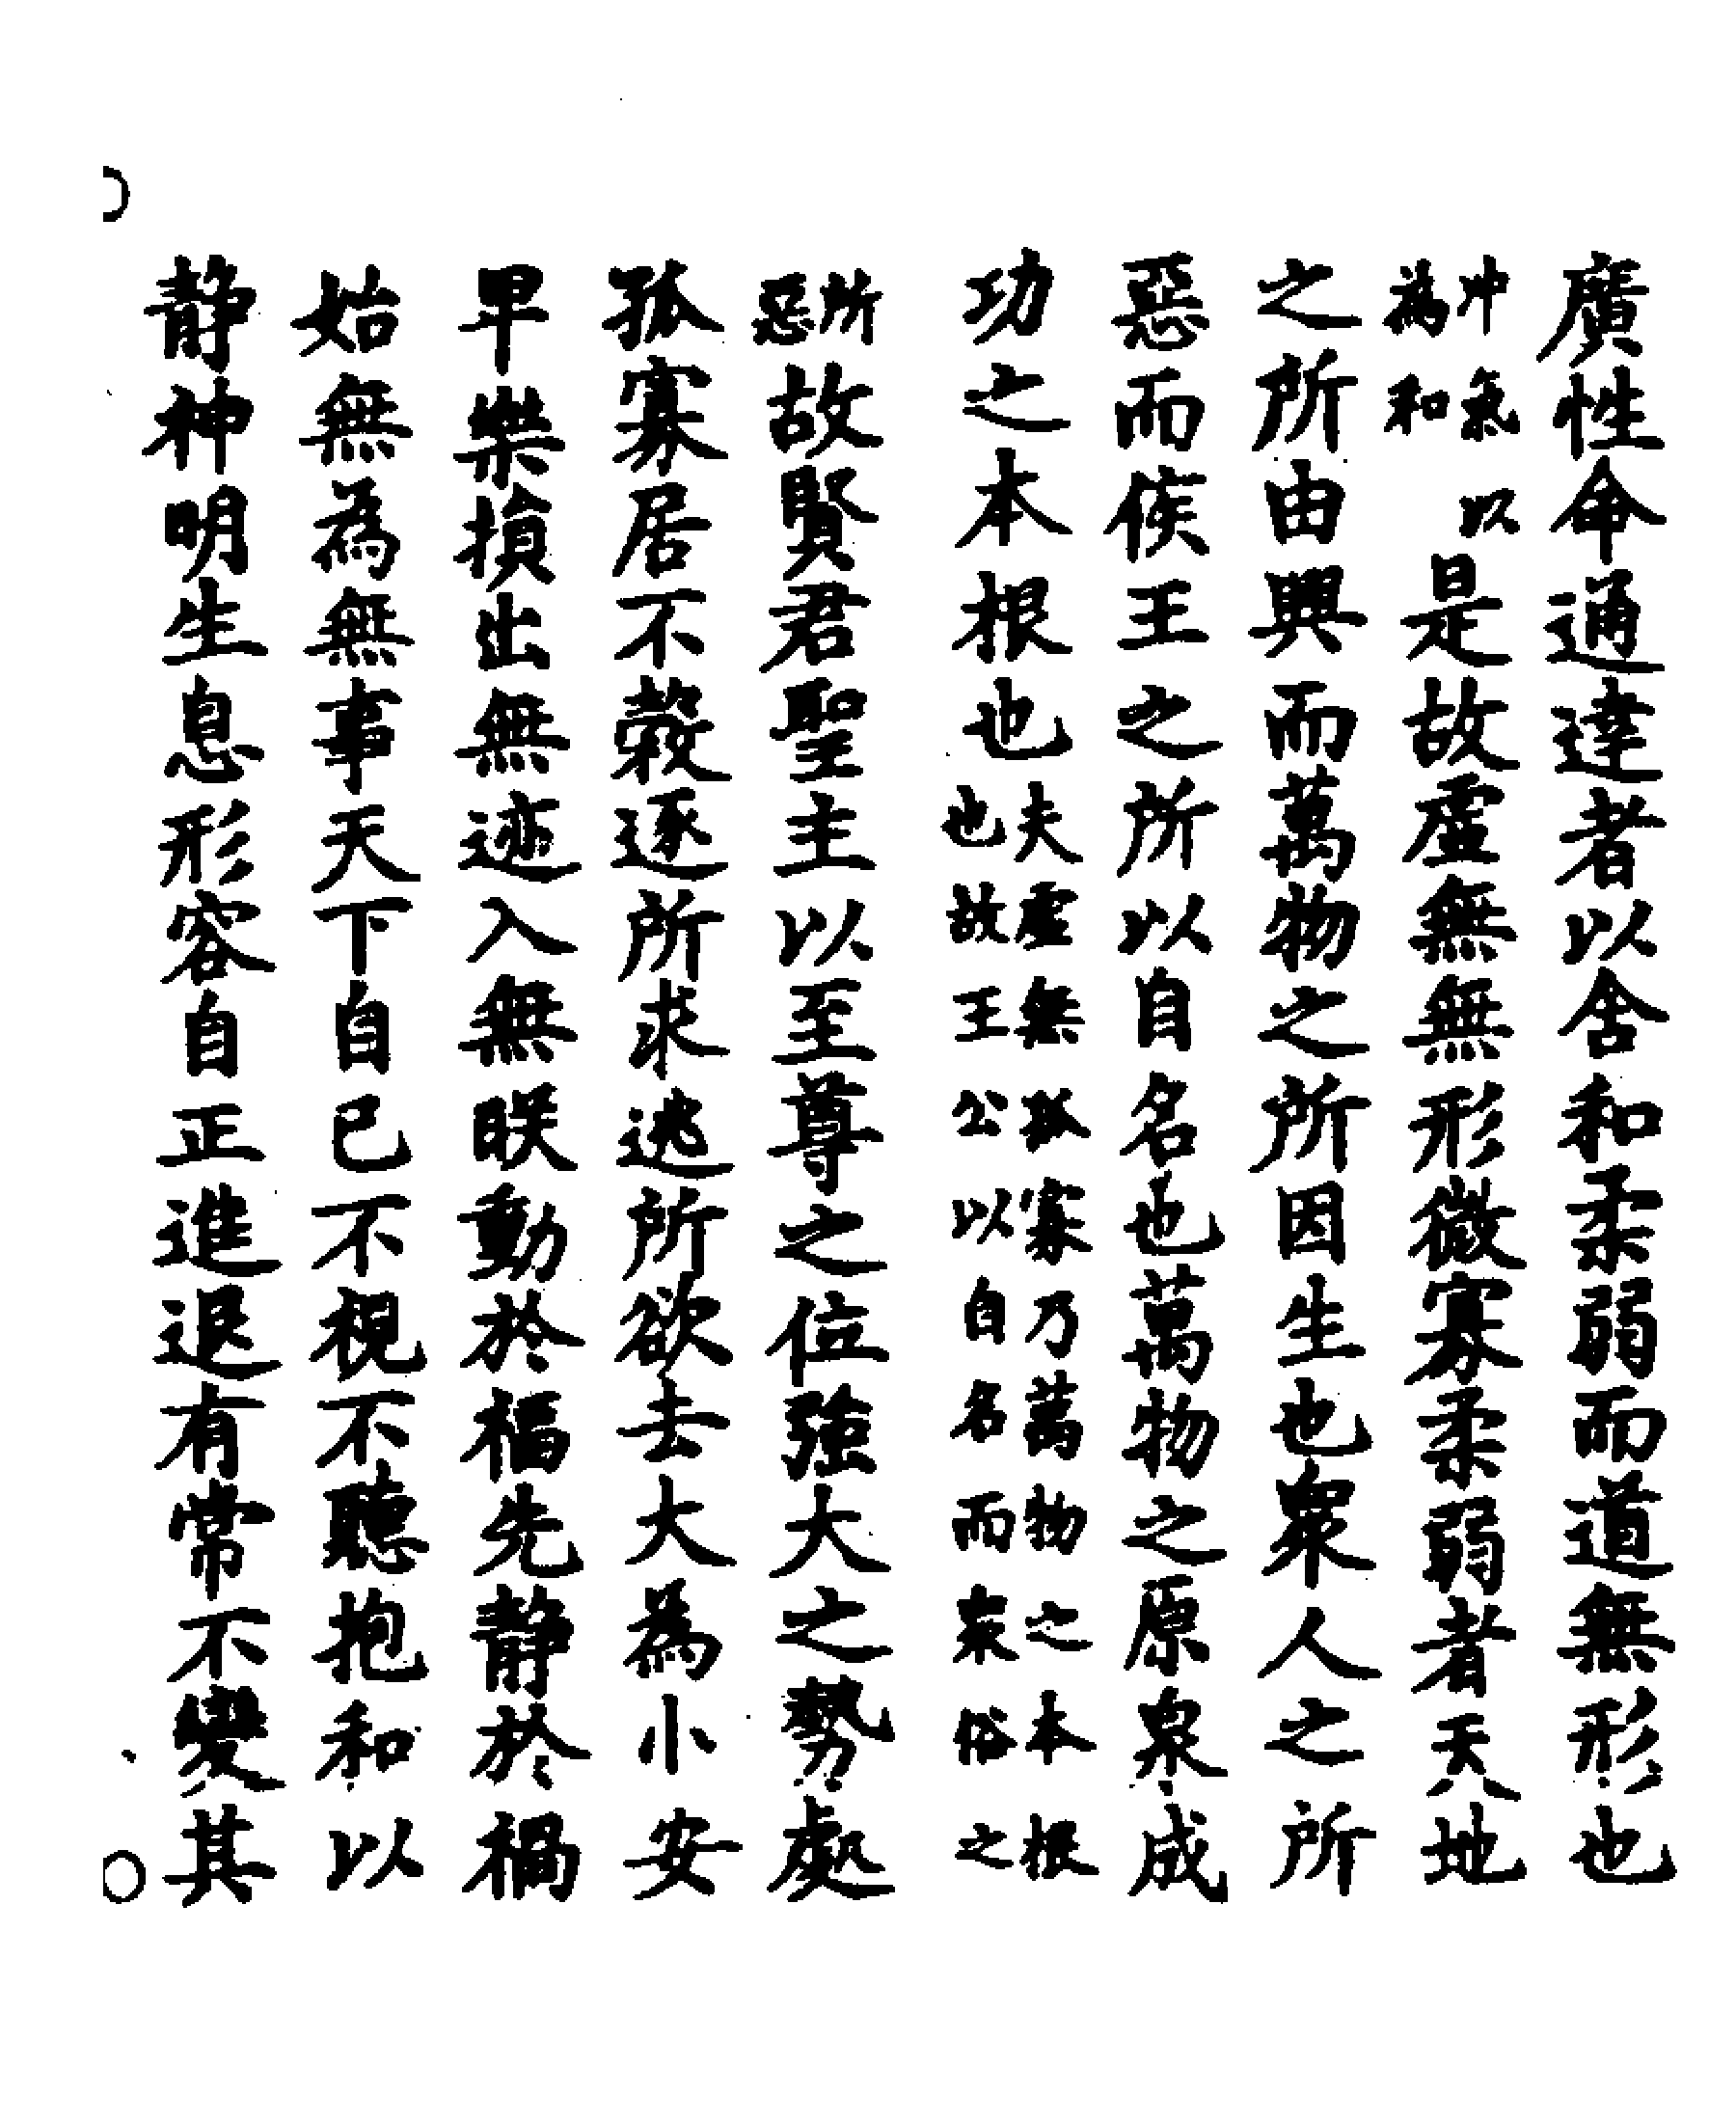 廣性命通達者以含和柔弱而道無形也
冲氣以
為和
是故虛無無形微寡柔弱者天地
之所由興而萬物之所因生也衆人之所
惡而侯王之所以自名也萬物之原泉成
功之本根也
夫虛無孤寡乃萬物之本根
也故王公以自名而衆俗之
所
惡
故賢君聖主以至尊之位強大之勢處
孤寡居不穀逐所求逃所欲去大為小安
卑樂損出無迹入無朕動於福先静於禍
始無為無事天下自已不視不聽抱和以
静神明生息形容自正進退有常不變其